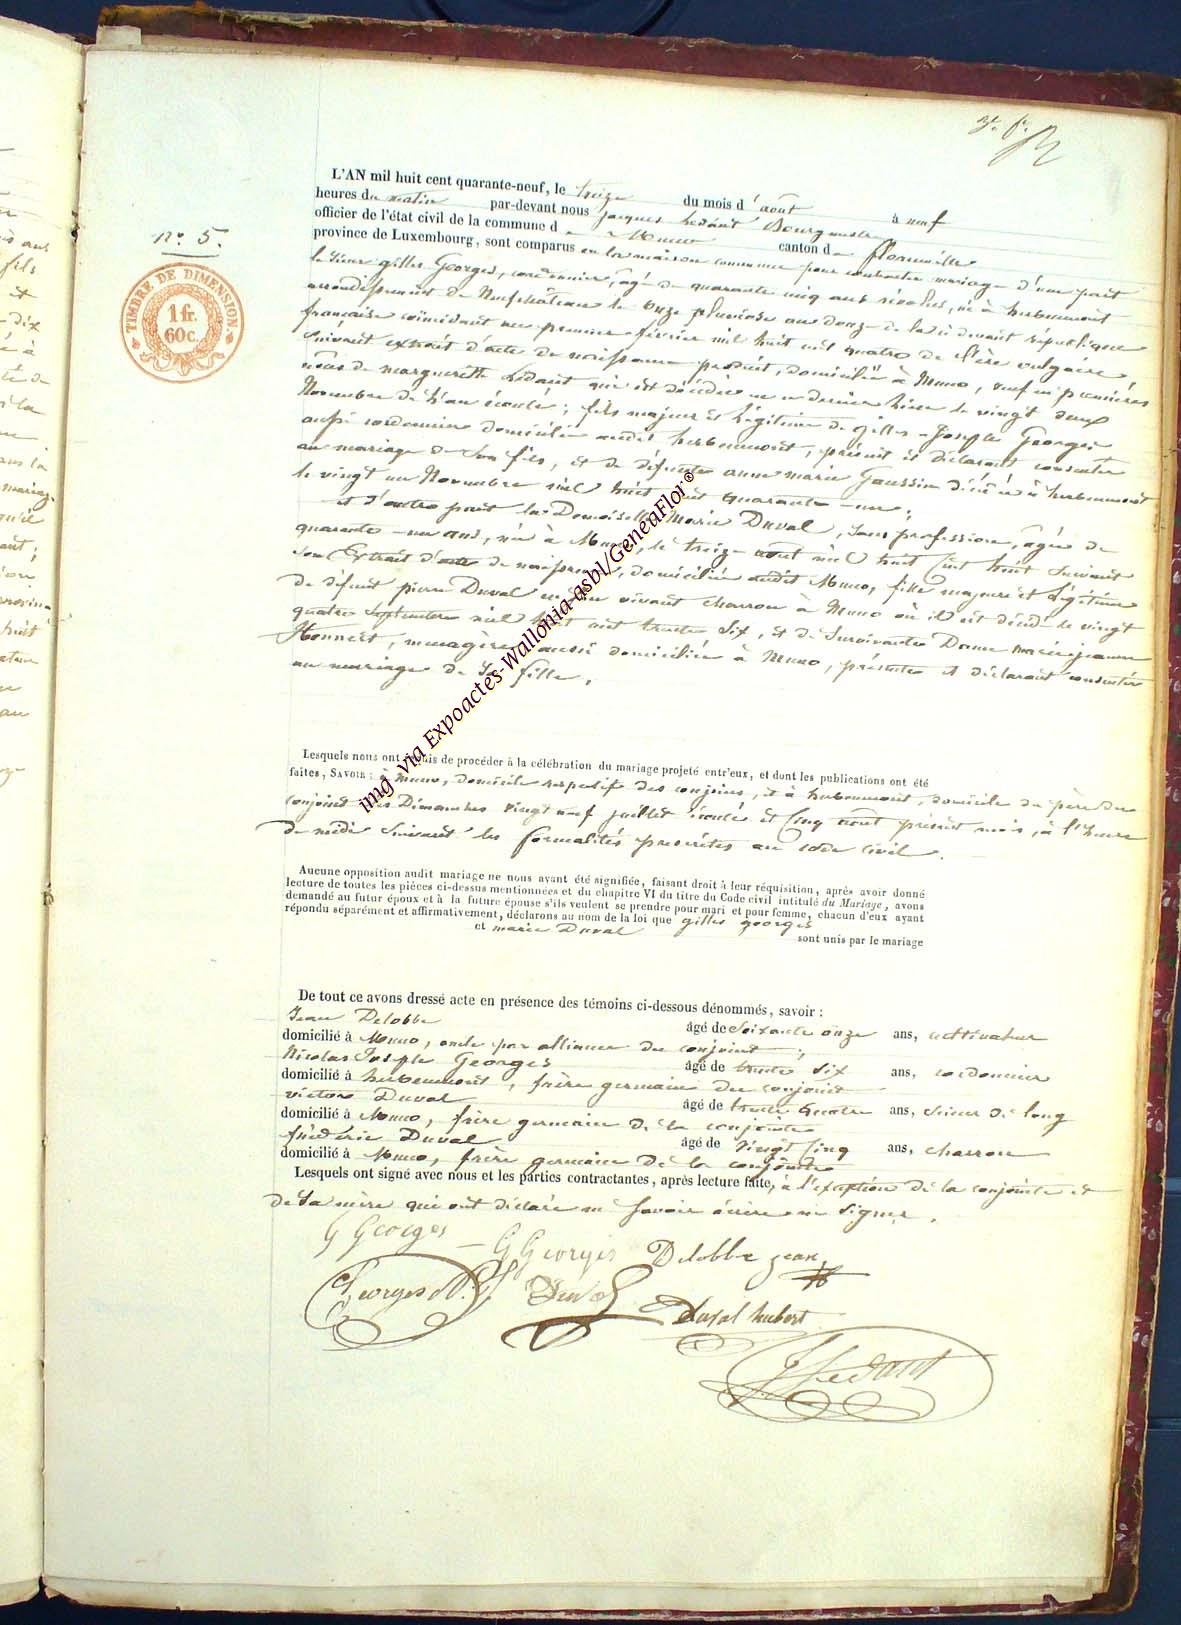 n.° 5.
TIMBRE DE DIMENSION.
1 fr.
60 c.
L'AN mil huit cent quarante-neuf, le treize du mois d'août à neuf
heures du matin par-devant nous jacques hédant Bourgmestre
officier de l'état civil de la commune de Muno canton de florenville
province de Luxembourg, sont comparus en la maison commune pour contracter mariage d'une part
le sieur gilles Georges, cordonnier, âgé de quarante cinq ans révolus, né à herbeumont
arrondissement de Neufchâteau le onze pluviose an douze de la ci devant république
française coïncidant au premier février mil huit cent quatre de l'ère vulgaire
suivant extrait d'acte de naissance produit, domicilié à Muno, veuf en premières
nôces de marguerite hédant qui est décédée en ce dernier lieu le vingt deux
Novembre de l'an écoulé; fils majeur et légitime de gilles-Joseph Georges
aussi cordonnier domicilié audit herbeumont, présent et déclarant consentir
au mariage de son fils, et de défunte anne marie Goussin décédée à herbeumont
le vingt un Novembre mil huit cent quarante-un;
et d'autre part la Demoiselle Marie Duval, sans profession, âgée de
quarante-un ans, née à Muno, le treize août mil huit Cent huit suivant
son Extrait d'acte de naissance, domiciliée audit Muno, fille majeure et légitime
de défunt pierre Duval en son vivant charron à Muno où il est décédé le vingt
quatre Septembre mil huit cent trente Six, et de survivante Dame marie jeanne
Honnert, menagère aussi domiciliée à Muno, présente et déclarant consentir
au mariage de sa fille.
Lesquels nous ont requis de procéder à la célébration du mariage projeté entr'eux, et dont les publications ont été
faites, SAVOIR: à Muno, domicile respectif des conjoins, et à herbeumont, domicile du père du
conjoint les Dimanches vingt neuf juillet écoulé et Cinq août présent mois, à l'heure
de midi suivant les formalités prescrites au code civil.
Aucune opposition audit mariage ne nous ayant été signifiée, faisant droit à leur réquisition, après avoir donné
lecture de toutes les pièces ci-dessus mentionnées et du chapitre VI du titre du Code civil intitulé du Mariage, avons
demandé au futur époux et à la future épouse s'ils veulent se prendre pour mari et pour femme, chacun d'eux ayant
répondu séparément et affirmativement, déclarons au nom de la loi que gilles georges
et marie Duval sont unis par le mariage
De tout ce avons dressé acte en présence des témoins ci-dessous dénommés, savoir:
Jean Delobbe âgé de Soixante onze ans, cultivateur
domicilié à Muno, oncle par alliance du conjoint;
Nicolas Joseph Georges âgé de trente six ans, cordonnier
domicilié à herbeumont, frère germain du conjoint
victor Duval âgé de trente quatre ans, Scieur de long
domicilié à Muno, frère germain de la conjointe
frédéric Duval âgé de vingt Cinq ans, charron
domicilié à Muno, frère germain de la conjointe
Lesquels ont signé avec nous et les parties contractantes, après lecture faite, à l'exception de la conjointe et
de sa mère qui ont déclaré ne savoir écrire ni signer.
G Georges – G Georges Delobbe jean
Georges N. J. Duval
Duval hubert
J hédant
img via Expoactes-Wallonia asbl/GeneaFlor©